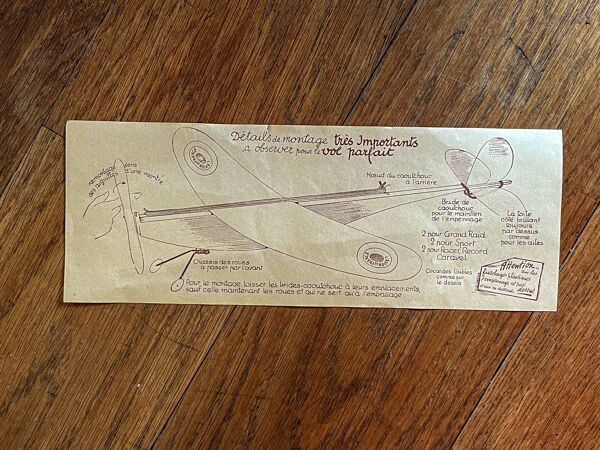 Détails de montage très Importants
à observer pour le vol parfait
remontage sens
des aiguilles d'une montre
Nœud du caoutchouc
à l'arrière
Bride de
caoutchouc
pour le maintien
de l'empennage
La toile
côté brillant
toujours
par dessus
comme
pour les ailes
2 pour Grand Raid
2 pour Sport
2 pour Racer, Record
Caravel
Cocardes lisibles
comme sur
le dessin
Châssis des roues
à passer par l'avant
Attention...
fuselages plastiques
l'empennage se fixe
dessus
Pour le montage, laisser les brides-caoutchouc à leurs emplacements,
sauf celle maintenant les roues et qui ne sert qu'à l'emballage